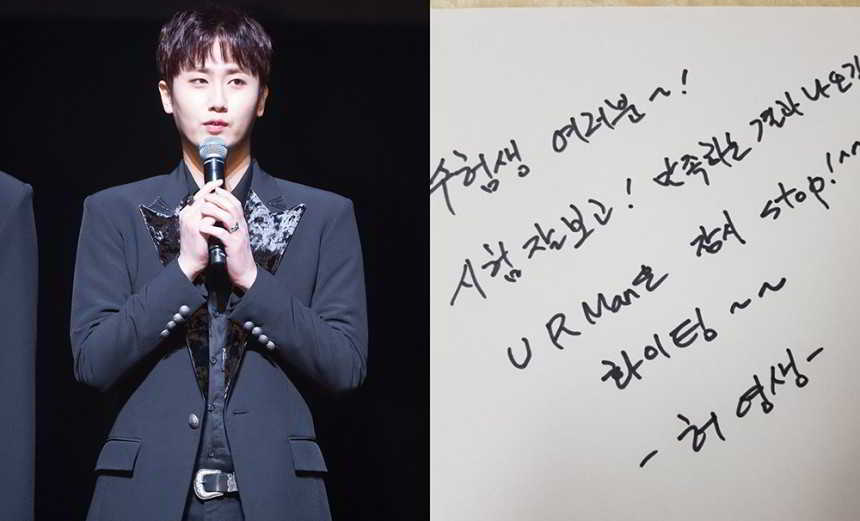 수험생 여러분~!
시험 잘보고! 만족하는 결과 나오길
U R Man은 잠시 stop!^^
화이팅~~
- 허영생 -